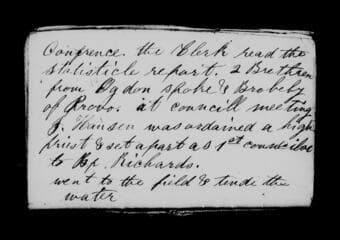 Conference. the Clerk read the
statisticle report. 2 Brethren
from Ogdon spoke & Brobeby
of Provo. at councill meeting
J. Hansen was ordained a high
priest & set apart as 1st counsciler
to Bp. Richards.
went to the field & tende the
water